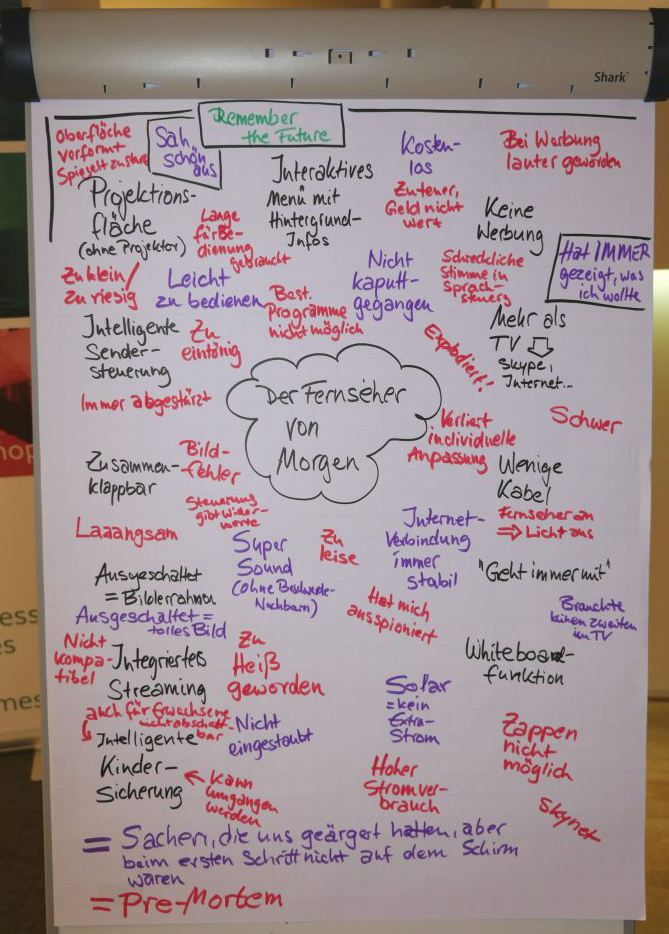 Shark
Remember
the Future
Oberfläche
verformt
Spiegelt zu stark
Sah
schön
aus
Interaktives
Menü mit
Hintergrund-
Infos
Kosten-
los
Bei Werbung
lauter geworden
Projektions-
fläche
(ohne Projektor)
Lange
für Be-
dienung
gebraucht
Zu teuer,
Geld nicht
wert
Keine
Werbung
Hat IMMER
gezeigt, was
ich wollte
Zu klein/
Zu riesig
Leicht
zu bedienen
Nicht
kaputt-
gegangen
Schreckliche
Stimme in
Sprach-
steuerg
Best.
Programme
nicht möglich
Mehr als
TV
Skype,
Internet...
Intelligente
Sender-
steuerung
Zu
eintönig
Explodiert!
Immer abgestürzt
Der Fernseher
von
Morgen
Verliert
individuelle
Anpassung
Schwer
Zusammen-
klappbar
Bild-
fehler
Wenige
Kabel
Steuerung
gibt Wider-
worte
Fernseher an
⇒ Licht aus
Laaangsam
Super
Sound
(ohne Beschwerde-
Nachbarn)
Zu
leise
Internet-
Verbindung
immer
stabil
"Geht immer mit"
Ausgeschaltet
= Bilderrahmen
Ausgeschaltet =
tolles Bild
Hat mich
ausspioniert
Brauchte
keinen zweiten
im TV
Nicht
kompa-
tibel
Integriertes
Streaming
Zu
Heiß
geworden
Whiteboard-
funktion
Solar
= kein
Extra-
Strom
auch für Erwachsene
nicht abschalt-
bar
Intelligente
Kinder-
Sicherung
Nicht
eingestaubt
Zappen
nicht
möglich
← Kann
umgangen
werden
Hoher
Stromver-
brauch
Skynet
= Sachen, die uns geärgert hatten, aber
beim ersten Schritt nicht auf dem Schirm
waren
= Pre-Mortem